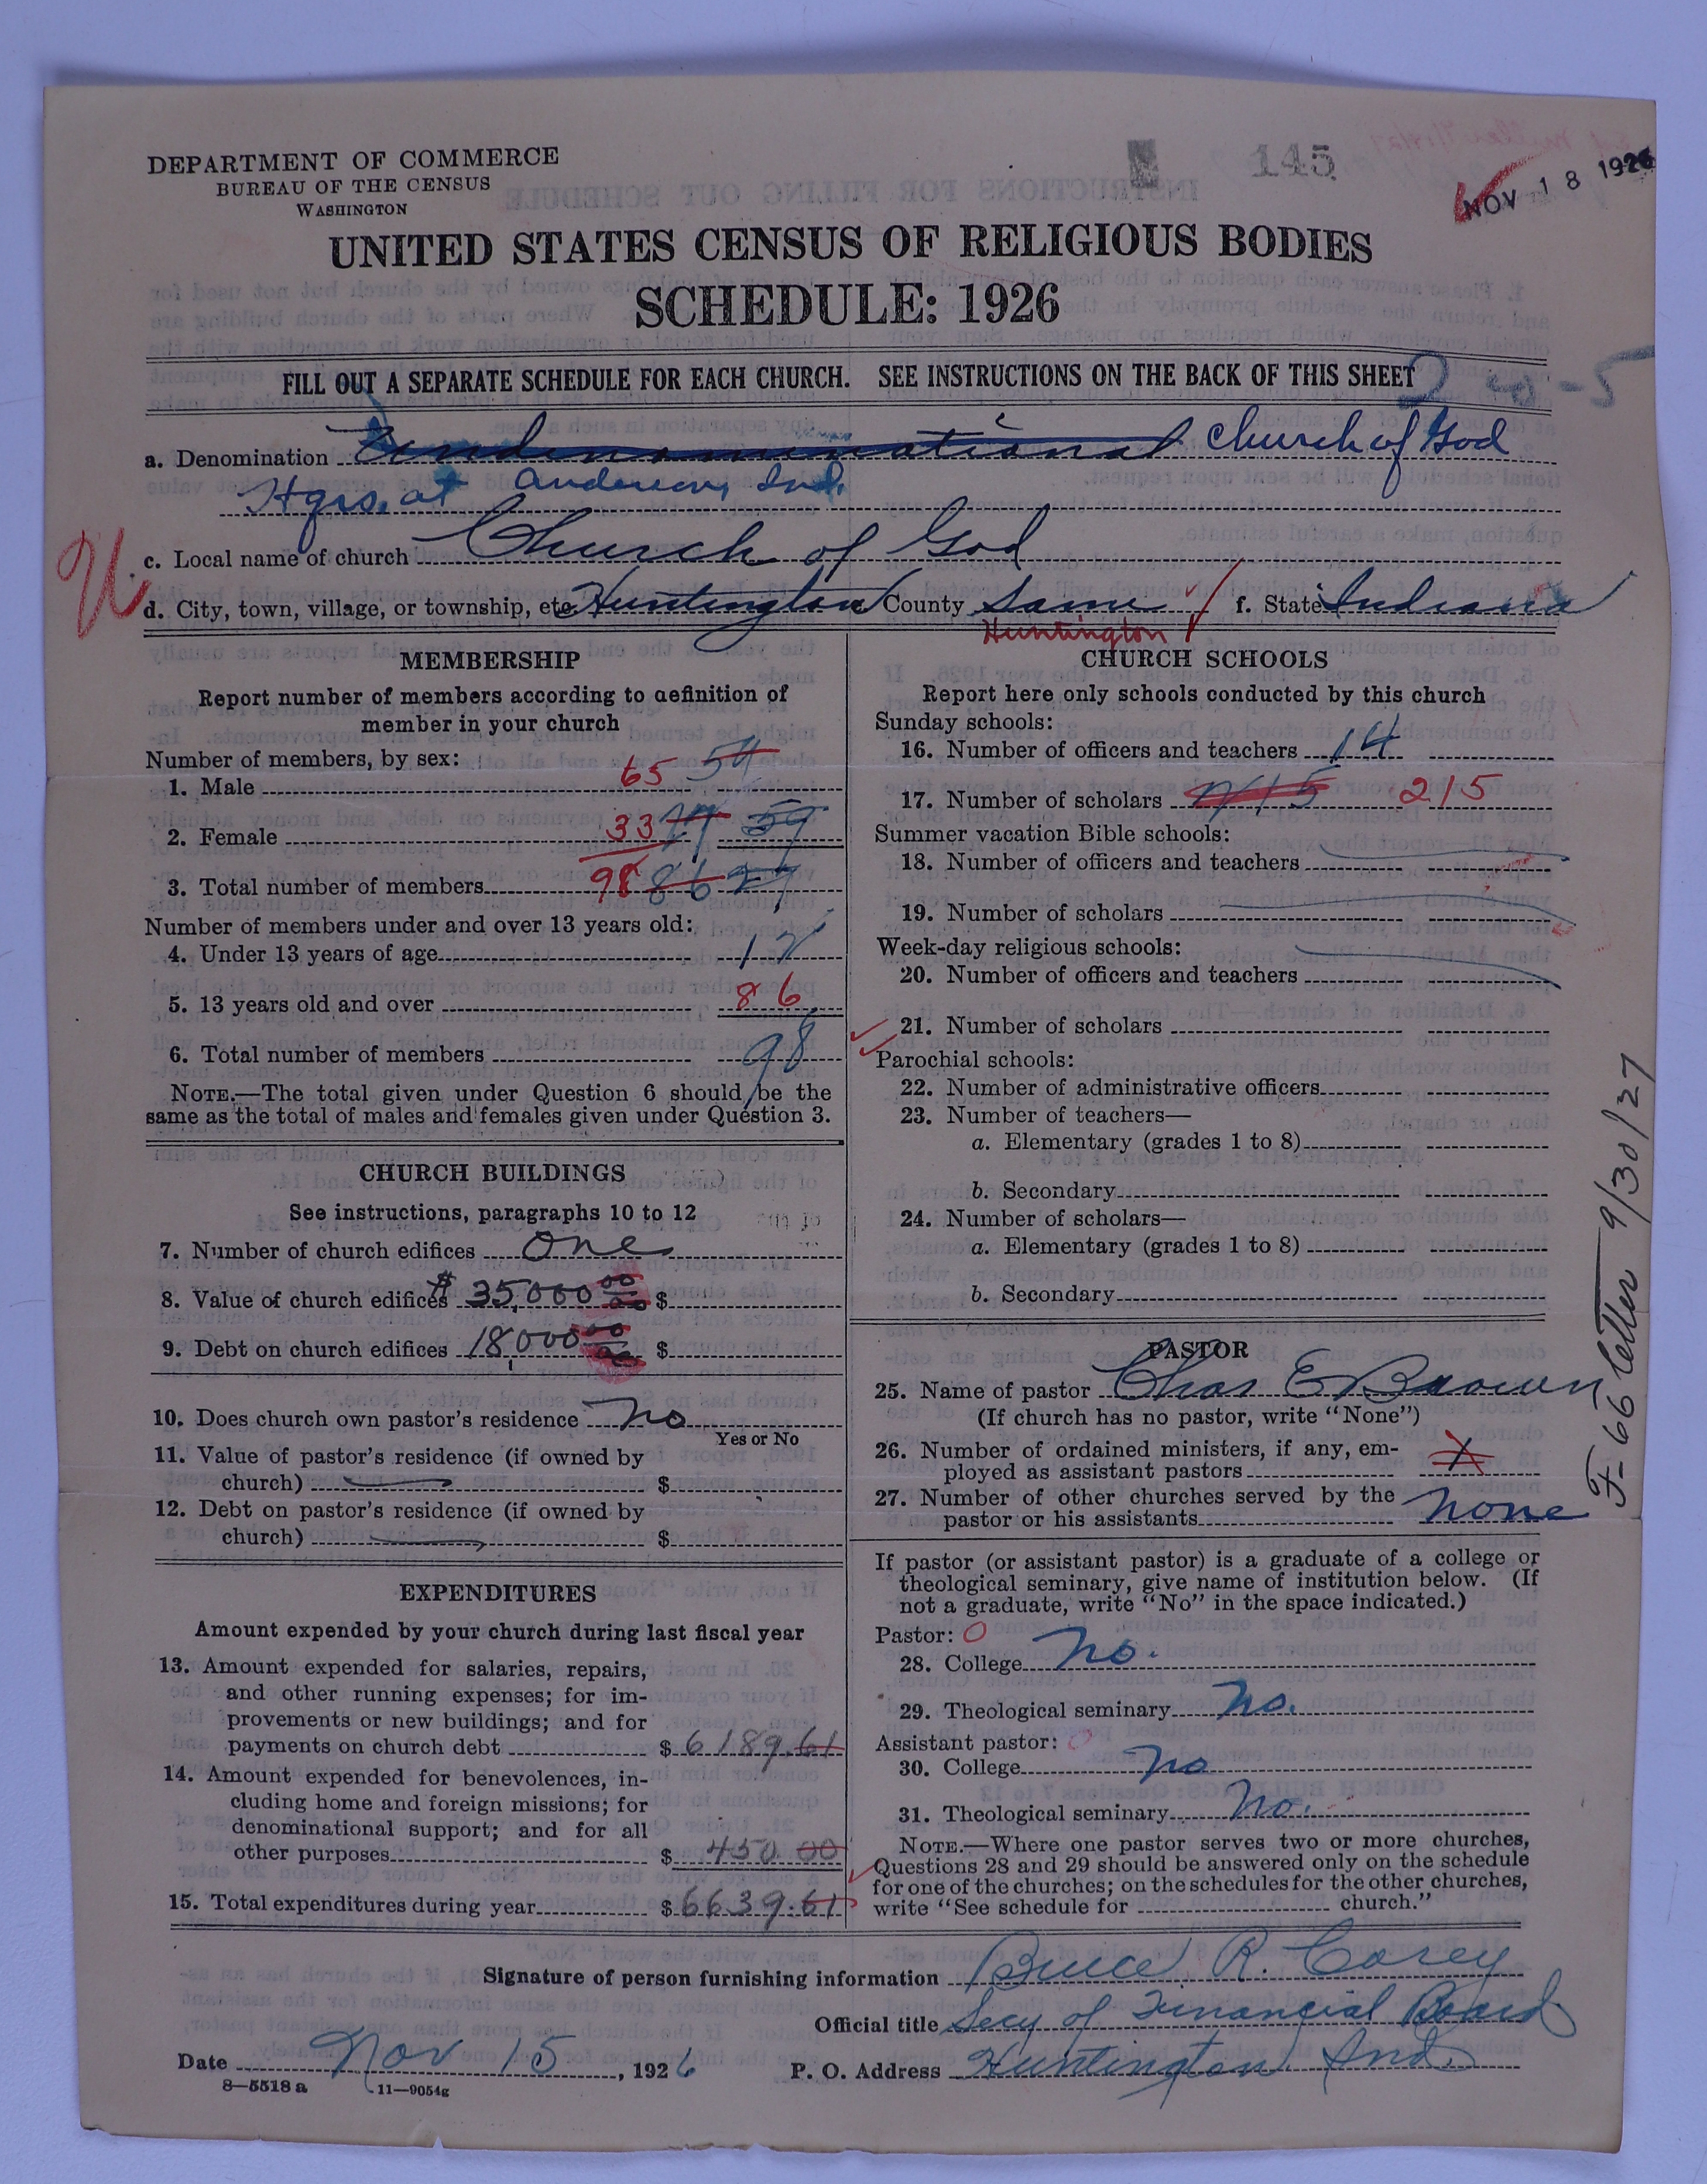 DEPARTMENT OF COMMERCE
BUREAU OF THE CENSUS
WASHINGTON
145
NOV 18 1926
UNITED STATES CENSUS OF RELIGIOUS BODIES
SCHEDULE: 1926
FILL OUT A SEPARATE SCHEDULE FOR EACH CHURCH. SEE INSTRUCTIONS ON THE BACK OF THIS SHEET
2-0-5
a. Denomination Undenominational Church of God
Hqrs. at Anderson, Ind.
c. Local name of church Church of God
d. City, town, village, or township, etc. Huntington County Same f. State Indiana
Huntington
MEMBERSHIP
Report number of members according to definition of
member in your church
Number of members, by sex:
1. Male 65 54
2. Female 33 59
3. Total number of members 98 86
Number of members under and over 13 years old:
4. Under 13 years of age 12
5. 13 years old and over 86
6. Total number of members 98
NOTE.—The total given under Question 6 should be the
same as the total of males and females given under Question 3.
CHURCH BUILDINGS
See instructions, paragraphs 10 to 12
7. Number of church edifices One
8. Value of church edifices $35,000 00 $
9. Debt on church edifices 18,000 00 $
10. Does church own pastor's residence no
Yes or No
11. Value of pastor's residence (if owned by
church) $
12. Debt on pastor's residence (if owned by
church) $
EXPENDITURES
Amount expended by your church during last fiscal year
13. Amount expended for salaries, repairs,
and other running expenses; for im-
provements or new buildings; and for
payments on church debt $ 6189.61
14. Amount expended for benevolences, in-
cluding home and foreign missions; for
denominational support; and for all
other purposes $ 450.00
15. Total expenditures during year $ 6639.61
CHURCH SCHOOLS
Report here only schools conducted by this church
Sunday schools:
16. Number of officers and teachers 14
17. Number of scholars 215
Summer vacation Bible schools:
18. Number of officers and teachers
19. Number of scholars
Week-day religious schools:
20. Number of officers and teachers
21. Number of scholars
Parochial schools:
22. Number of administrative officers
23. Number of teachers—
a. Elementary (grades 1 to 8)
b. Secondary
24. Number of scholars—
a. Elementary (grades 1 to 8)
b. Secondary
PASTOR
25. Name of pastor Chas E Brown
(If church has no pastor, write "None")
26. Number of ordained ministers, if any, em-
ployed as assistant pastors X
27. Number of other churches served by the
pastor or his assistants none
If pastor (or assistant pastor) is a graduate of a college or
theological seminary, give name of institution below. (If
not a graduate, write "No" in the space indicated.)
Pastor: O
28. College no.
29. Theological seminary no.
Assistant pastor: O
30. College no
31. Theological seminary no.
NOTE.—Where one pastor serves two or more churches,
Questions 28 and 29 should be answered only on the schedule
for one of the churches; on the schedules for the other churches,
write "See schedule for church."
F-66 letter 9/30/27
Signature of person furnishing information Bruce R. Corey
Official title Secy of Financial Board
Date Nov 15, 1926 P. O. Address Huntington Ind.
8—5518 a 11—9054g